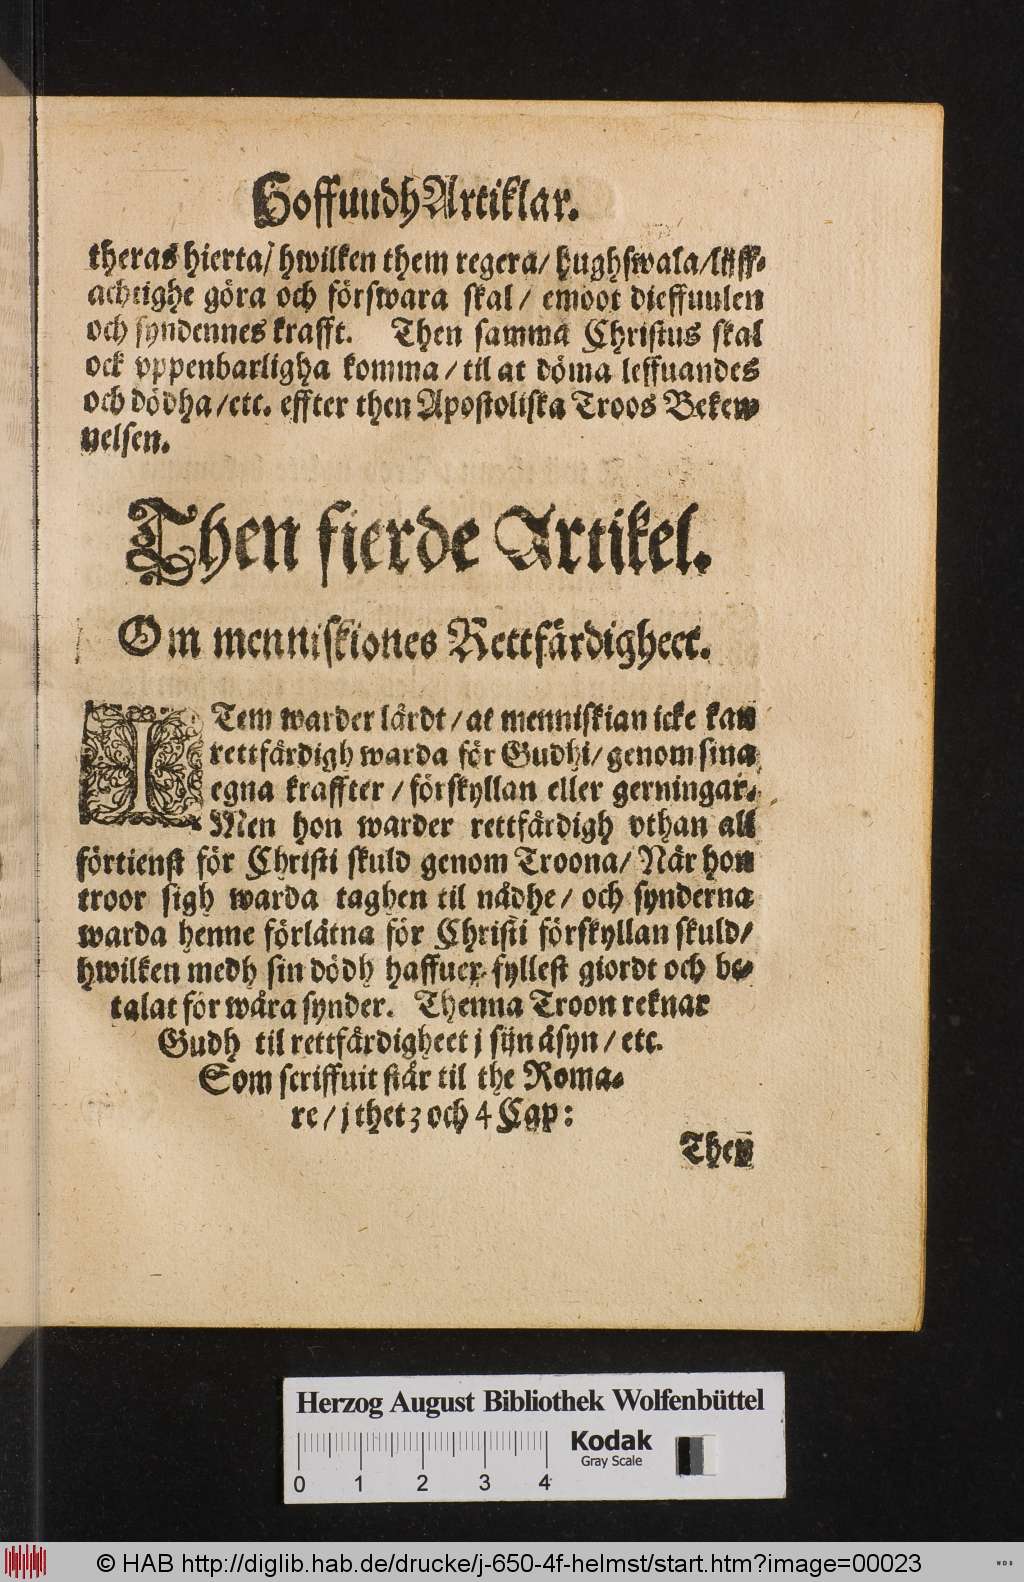 Hoffuudh Artiklar.
theras hierta/ hwilken them regera/ hughswala/ lijff-
achtighe göra och förswara skal/ emoot dieffuulen
och syndennes krafft. Then samma Christus skal
ock vppenbarligha komma/ til at döma leffuandes
och dödha/ etc. effter then Apostoliska Troos Beken-
nelsen.
Then fierde Artikel.
Om menniskiones Rettfärdigheet.
ITem warder lärdt/ at menniskian icke kan
rettfärdigh warda för Gudhi/ genom sina
egna kraffter/ förskyllan eller gerningar.
Men hon warder rettfärdigh vthan all
förtienst för Christi skuld genom Troona/ När hon
troor sigh warda taghen til nådhe/ och synderna
warda henne förlåtna för Christi förskyllan skuld/
hwilken medh sin dödh haffuer fyllest giordt och be-
talat för wåra synder. Thenna Troon reknar
Gudh til rettfärdigheet j sijn åsyn/ etc.
Som scriffuit står til the Roma-
re/ j thet 3 och 4 Cap:
Then
Herzog August Bibliothek Wolfenbüttel
Kodak
Gray Scale
0 1 2 3 4
© HAB http://diglib.hab.de/drucke/j-650-4f-helmst/start.htm?image=00023
WDB